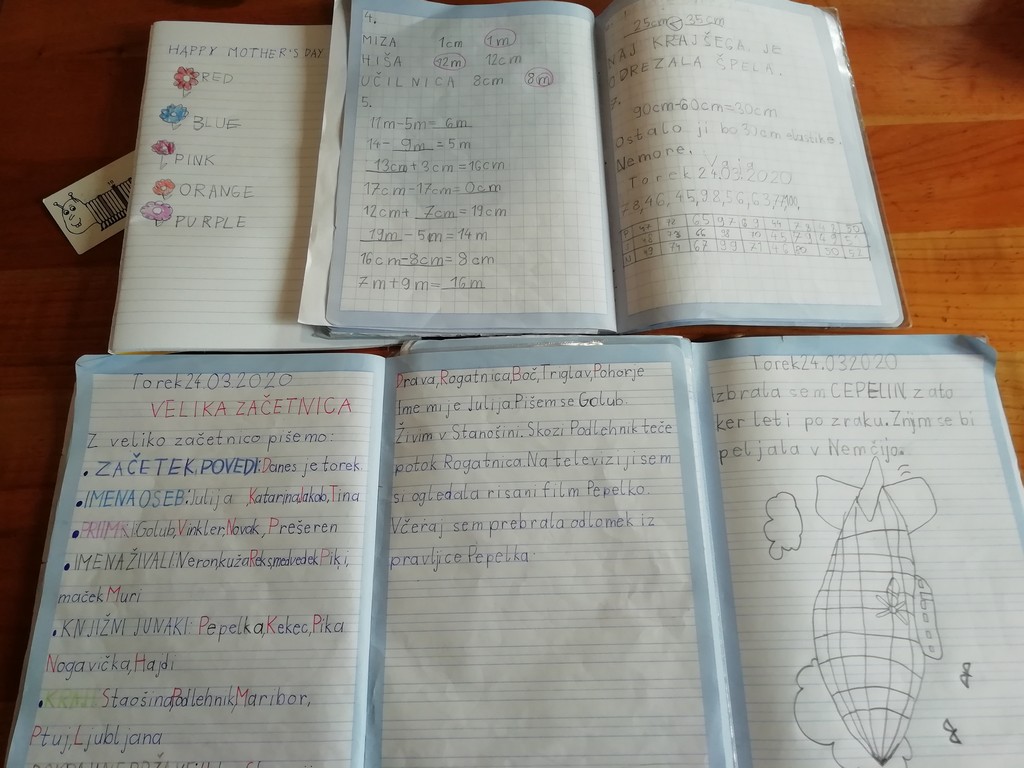 HAPPY MOTHER'S DAY
RED
BLUE
PINK
ORANGE
PURPLE
4.
MIZA 1cm 1m
HIŠA 12m 12cm
UČILNICA 8cm 8m
5.
11m-5m= 6m
14- 9m = 5m
13cm + 3cm = 16cm
17cm-17cm= 0cm
12cm+ 7cm = 19cm
19m - 5m = 14m
16cm-8cm= 8cm
7m+9m= 16m
25cm < 35cm
NAJ KRAJŠEGA JE
ODREZALA ŠPELA.
7.
90cm-60cm=30cm
Ostalo ji bo 30cm elastike.
Nemore.
Vaja
Torek 24.03.2020
78,46, 45,98,56,63,77,100,
Torek 24.03.2020
VELIKA ZAČETNICA
Z veliko začetnico pišemo:
• ZAČETEK POVEDI: Danes je torek
• IMENA OSEB: Julija Katarina Jakob, Tina
• PRIIMKI Golub, Vinkler, Novak, Prešeren
• IMENA ŽIVALI: Piki,
maček Muri
• KNJIŽNI JUNAKI: Pepelka, Kekec, Pika
Nogavička, Hajdi
• KRAJI: Staošina, Podlehnik, Maribor,
Ptuj, Ljubljana
Drava, Rogatnica, Boč, Triglav, Pohorje
Ime mi je Julija. Pišem se Golub.
Živim v Stanošini. Skozi Podlehnik teče
potok Rogatnica. Na televiziji sem
si ogledala risani film Pepelko.
Včeraj sem prebrala odlomek iz
pravljice Pepelka.
Torek 24.03.2020
Izbrala sem CEPELIN zato
ker leti po zraku. Z njim se bi
peljala v Nemčijo.